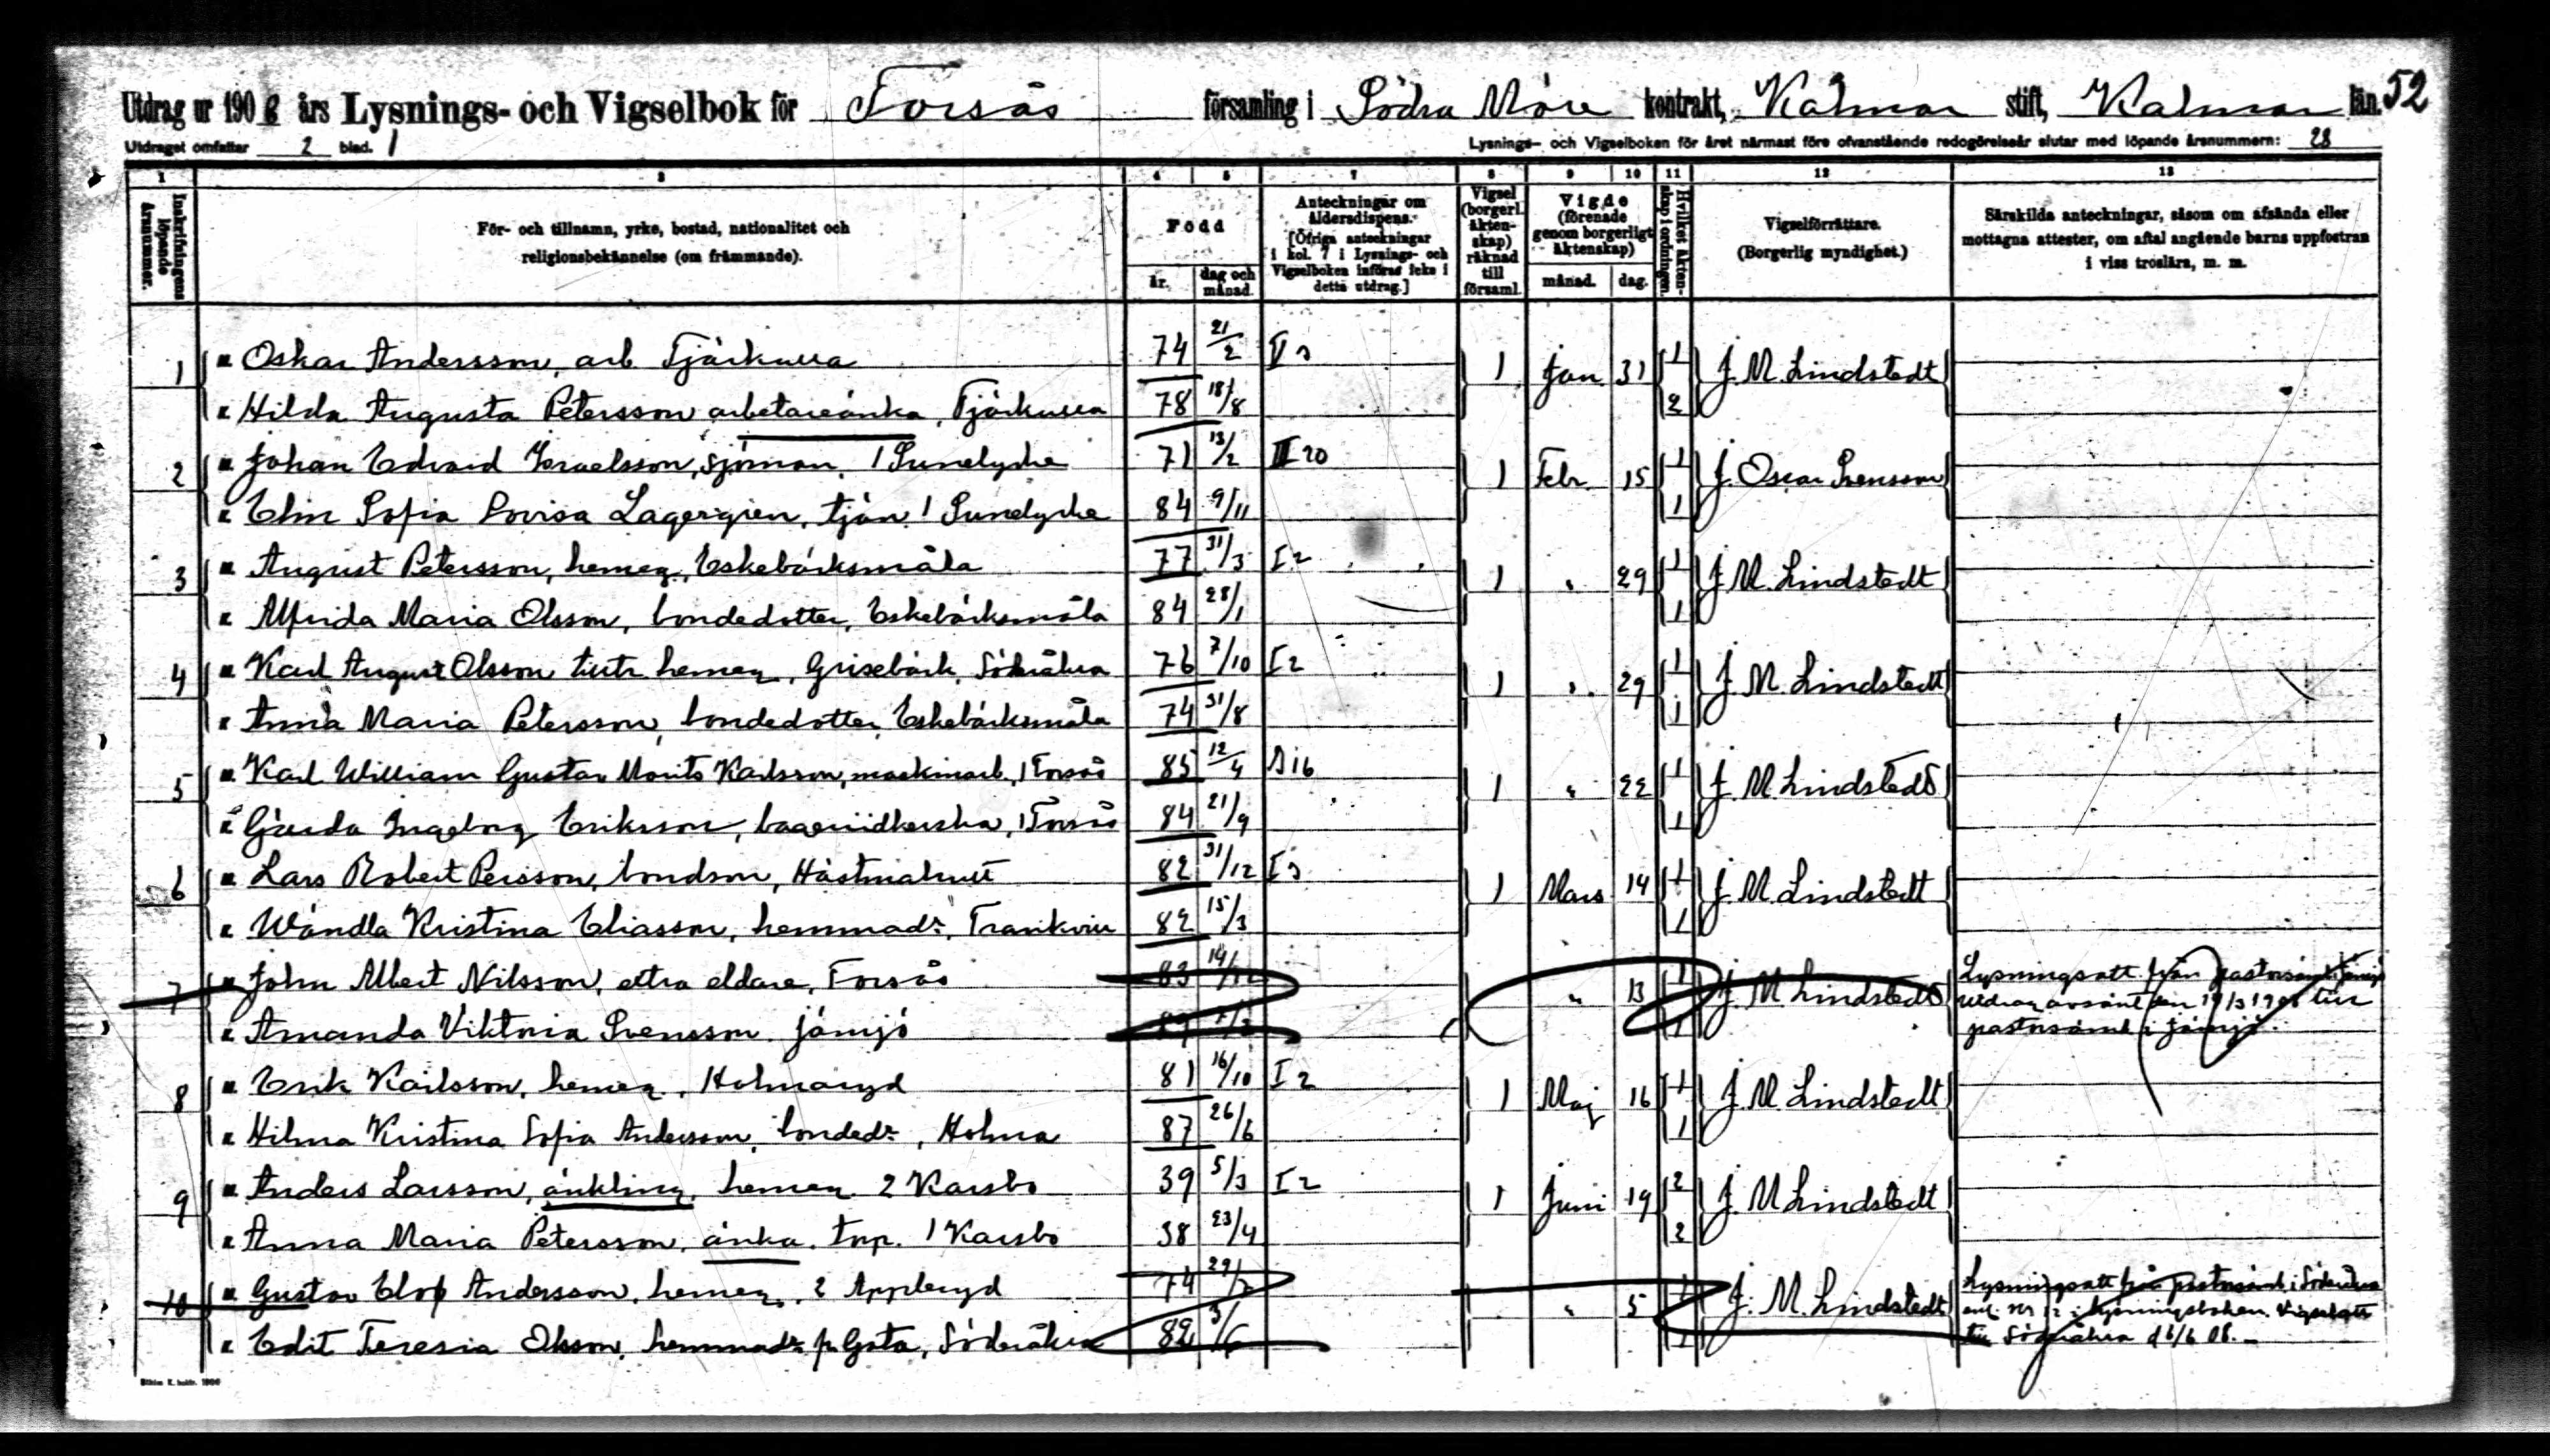 Utdrag ur 1908 års Lysnings- och Vigselbok för Torsås församling i Södra Möre kontrakt, Kalmar stift, Kalmar län. 52
Utdraget omfattar 2 blad. 1
Lysnings- och Vigselboken för året närmast före ofvanstående redogörelseår slutar med löpande årsnummern: 28
1 3 4 5 7 8 9 10 11 12 13
Inskrifningens löpande årsnummer.
För- och tillnamn, yrke, bostad, nationalitet och
religionsbekännelse (om främmande).
Född
år. dag och månad.
Anteckningar om
åldersdispens.
[Öfriga anteckningar
i kol. 7 i Lysnings- och
Vigselboken införas icke i
detta utdrag.]
Vigsel
(borgerl.
äkten-
skap)
räknad
till
församl.
Vigde
(förenade
genom borgerligt
äktenskap)
månad. dag.
Hvilket äkten-
skap i ordningen.
Vigselförrättare.
(Borgerlig myndighet.)
Särskilda anteckningar, såsom om afsända eller
mottagna attester, om aftal angående barns uppfostran
i viss troslära, m. m.
1 Oskar Andersson, arb. Tjärkulla 74 21/2 1 Jan. 31 1 J. M. Lindstedt
Hilda Augusta Petersson arbetareänka, Tjärkulla 78 18/8 2
2 Johan Edvard Israelsson, sjöman, 1 71 13/2 II 20 1 Febr. 15 1 J. Oscar Svensson
Elin Sofia Lovisa Lagergren, tjän. 1 84 9/11 1
3 August Petersson, hemeg., Eskebärksmåla 77 31/3 I 2 1 " 29 1 J. M. Lindstedt
Alfrida Maria Olsson, bondedotter, Eskebärksmåla 84 28/1 1
4 Karl August Olsson hemeg., Grisebäck, Söderåkra 76 7/10 I 2 1 " 29 1 J. M. Lindstedt
Anna Maria Petersson, bondedotter, Eskebärksmåla 74 31/8 1
5 Karl William Gustav Morits Karlsson, maskinarb., 1 Torsås 85 12/4 16 1 " 22 1 J. M. Lindstedt
Gärda Ingeborg Eriksson, bageriidkerska, 1 Torsås 84 21/9 1
6 Lars Robert Persson, bondson, Hästmahult 82 31/12 I 3 1 Mars 14 1 J. M. Lindstedt
Wändla Kristina Eliasson, hemmadr, 82 15/3 1
7 John Albert Nilsson, extra eldare, Torsås 83 " 13 1 J. M. Lindstedt Lysningsatt. från pastorsämb. i Jämjö
Amanda Viktoria Svensson. Jämjö 1 utdrag avsänt den 19/3 1908 till
pastorsämb. i Jämjö.
8 Erik Karlsson, hemeg., Holmaryd 81 16/10 I 2 1 Maj 16 1 J. M. Lindstedt
Hilma Kristina Sofia Andersson, bondedr, Holma 87 26/6 1
9 Anders Larsson, änkling, hemeg. 2 Karsbo 39 5/3 I 2 1 Juni 19 2 J. M. Lindstedt
Anna Maria Petersson, änka. torp. 1 Karsbo 38 23/4 2
10 Gustav Elof Andersson, hemeg., 2 Appleryd 74 " 5 1 J. M. Lindstedt Lysningsatt från pastorsämb. i Söderåkra
Edit Teresia Olsson, hemmadr. Söderåkra 82 1 enl. nr 12 i lysningsboken. Vigselatt
till Söderåkra d 6/6 08.